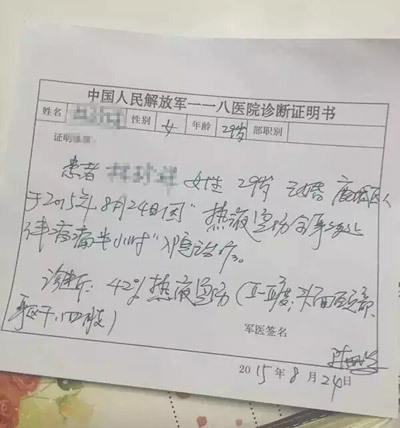 中国人民解放军一一八医院诊断证明书
姓名 性别 女 年龄 29岁 部职别
证明
患者 女性 29岁 已婚 鹿城区人
于2015年8月24日因"热液烫伤全身多处
伴疼痛半小时"入院治疗。
诊断:42%热液烫伤(II-III度,头面颈部、
躯干、四肢)
军医签名
2015年8月24日